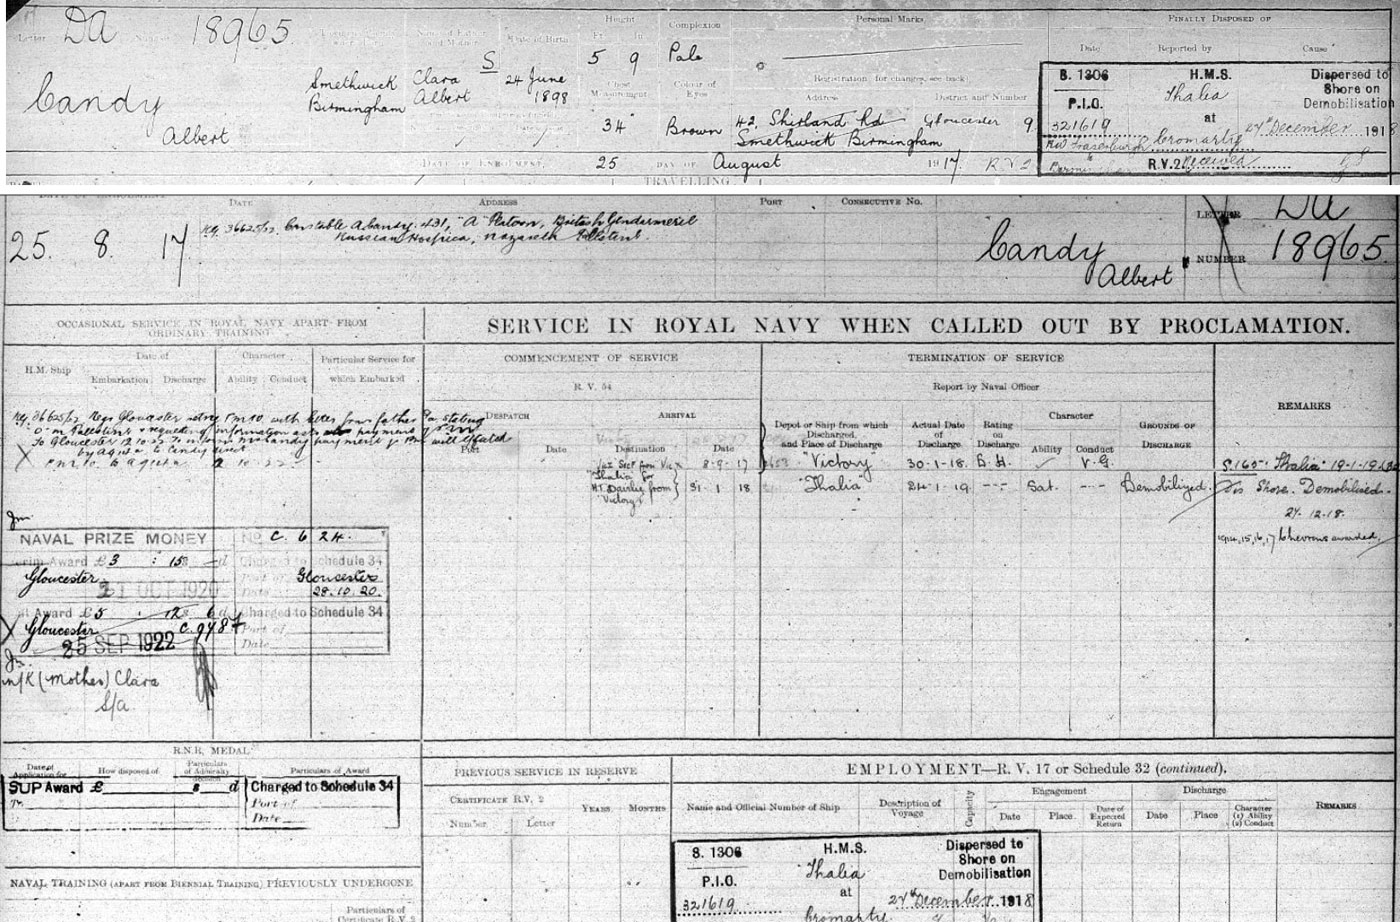 Letter DA Number 18965.
Height
Ft. In.
5 9
Complexion
Pale
Personal Marks
FINALLY DISPOSED OF
Date Reported by Cause
Candy
Albert
Smethwick
Birmingham
Clara
Albert
S
Date of Birth
24 June
1898
Chest
Measurement
34
Colour of
Eyes
Brown
Registration (for changes, see back)
Address District and Number
42, Shirland Rd Gloucester 9
Smethwick Birmingham
S. 1306 H.M.S. Dispersed to
P.I.O. Thalia Shore on
321619 at Demobilisation
Cromarty 27th December 1918
R.V.2 Received
DATE OF ENROLMENT, 25 DAY OF August 1917. R.V 2
TRAVELLING
DATE ADDRESS PORT CONSECUTIVE NO.
25. 8. 17
36625/22 Constable A Candy. 431, "A" Platoon, British Gendarmerie
Russian Hospice, Nazareth
Candy
Albert
LETTER DA
NUMBER 18965.
OCCASIONAL SERVICE IN ROYAL NAVY APART FROM
ORDINARY TRAINING
SERVICE IN ROYAL NAVY WHEN CALLED OUT BY PROCLAMATION.
H.M. Ship
Date of
Embarkation Discharge
Character
Ability Conduct
Particular Service for
which Embarked
COMMENCEMENT OF SERVICE
R. V. 54
DESPATCH ARRIVAL
Port Date Destination Date
TERMINATION OF SERVICE
Report by Naval Officer
Depot or Ship from which
Discharged,
and Place of Discharge
Actual Date
of
Discharge
Rating
on
Discharge
Character
Ability Conduct
GROUNDS OF
DISCHARGE
REMARKS
36625/22 Regr Gloucester with letter from father stating
requesting information payment
To Gloucester 12.10.22 To inform payment will
8-9-17 "Victory" 30-1-18. D.H. V.G.
"Thalia for
H.T. Dairlie from
"Victory"
31 1 18 "Thalia" 24-1-19 Sat. Demobilized.
S.165 "Thalia" 19-1-19
Dis Shore. Demobilised.
27. 12.18.
1914, 15, 16, 17 Chevrons awarded.
NAVAL PRIZE MONEY No C. 6 24.
Award £3 : 15s d Charged to Schedule 34
Gloucester Port of Gloucester
31 OCT 1920 Date 28.10.20.
Award £5 12s 6d Charged to Schedule 34
Gloucester C.9487 Port of
25 SEP 1922 Date
n/K (Mother) Clara
S/a
R.N.R. MEDAL
Date of
Application for
How disposed of
Particulars
of Admiralty
Decision
Particulars of Award
SUP Award £ s d Charged to Schedule 34
Port of
Date
PREVIOUS SERVICE IN RESERVE
CERTIFICATE R.V. 2 YEARS MONTHS
Number Letter
EMPLOYMENT—R. V. 17 or Schedule 32 (continued).
Name and Official Number of Ship
Description of
Voyage
Capacity
Engagement
Date Place
Date of
Expected
Return
Discharge
Date Place
Character
(1) Ability
(2) Conduct
REMARKS
S. 1306 H.M.S. Dispersed to
P.I.O. Thalia Shore on
at Demobilisation
321619. 27th December 1918
Cromarty
NAVAL TRAINING (APART FROM BIENNIAL TRAINING) PREVIOUSLY UNDERGONE
Particulars of
Certificate R.V. 2